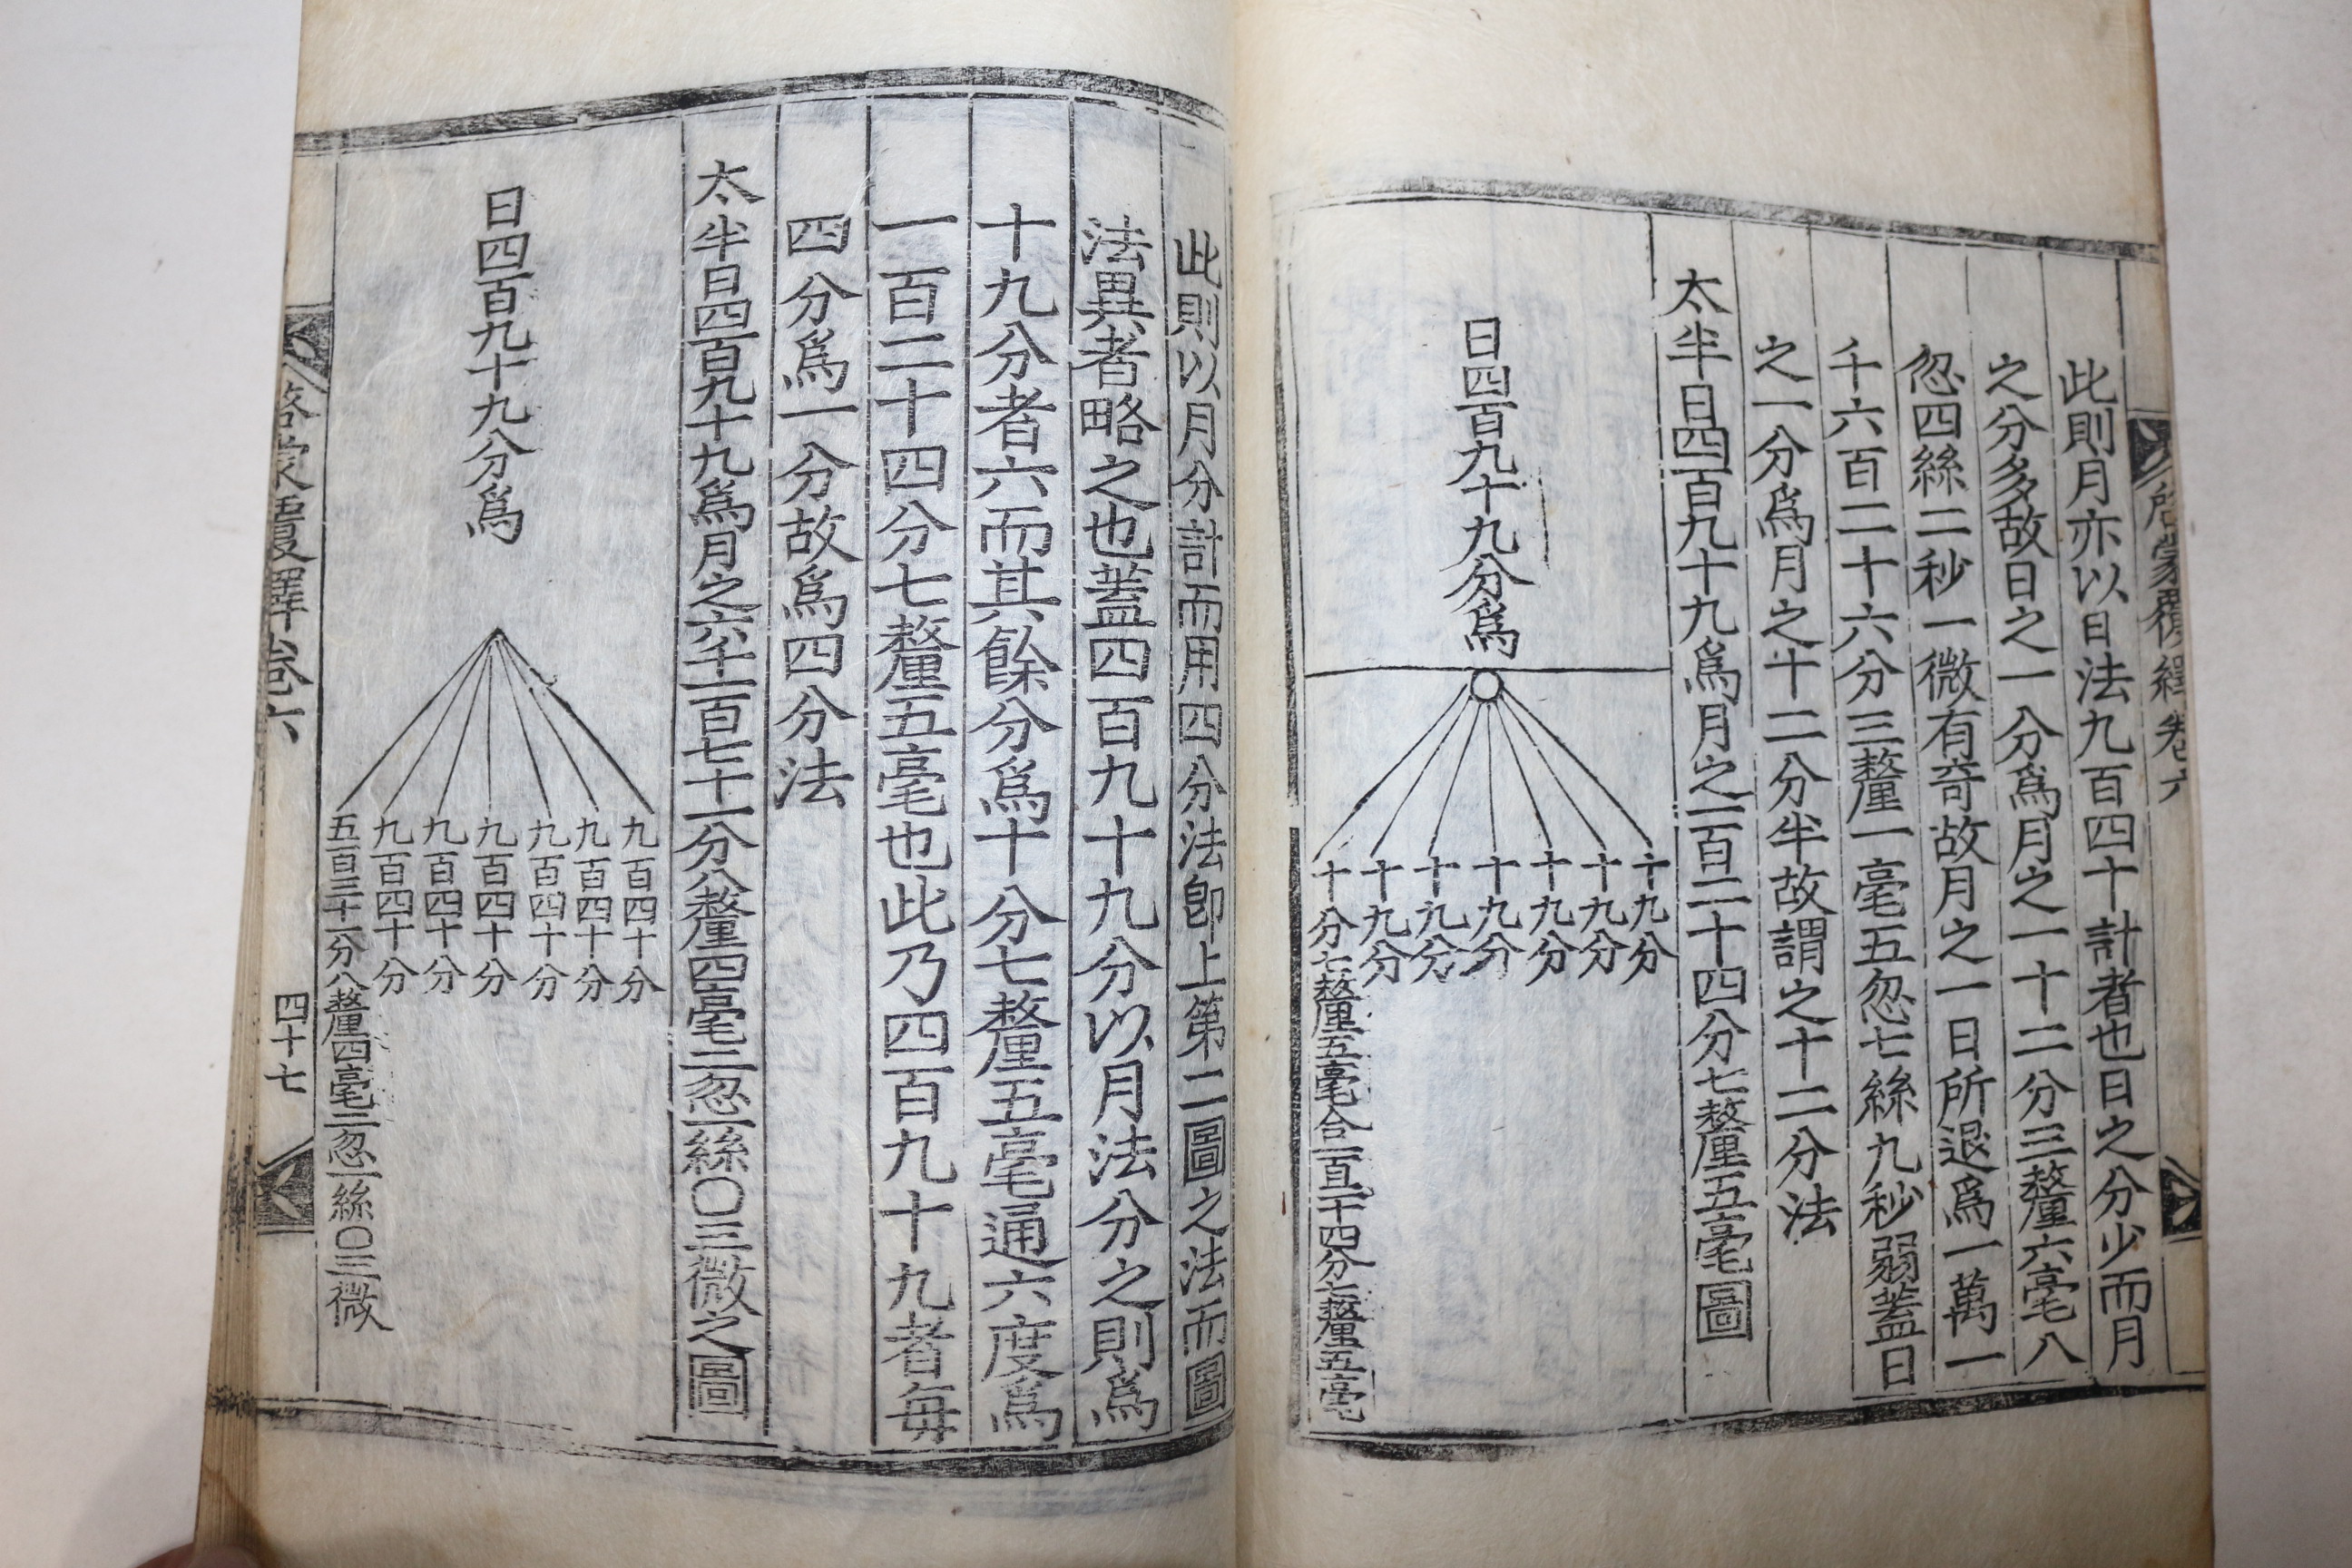 啓蒙覆繹卷六
此則月亦以日法九百四十計者也日之分少而月
之分多故日之一分爲月之一十二分三釐六毫八
忽四絲二秒一微有奇故月之一日所退爲一萬一
千六百二十六分三釐一毫五忽七絲九秒弱蓋日
之一分爲月之十二分半故謂之十二分法
太半日四百九十九爲月之一百二十四分七釐五毫圖
日四百九十九分爲
十九分
十九分
十九分
十九分
十九分
十九分
十分七釐五毫合一百二十四分七釐五毫
此則以月分計而用四分法卽上第二圖之法而圖
法異者略之也蓋四百九十九分以月法分之則爲
十九分者六而其餘分爲十分七釐五毫通六度爲
一百二十四分七釐五毫也此乃四百九十九者每
四分爲一分故爲四分法
太半日四百九十九爲月之六千一百七十一分八釐四毫二忽一絲〇三微之圖
日四百九十九分爲
九百四十分
九百四十分
九百四十分
九百四十分
九百四十分
九百四十分
五百三十一分八釐四毫二忽一絲〇三微
啓蒙覆繹卷六
四十七